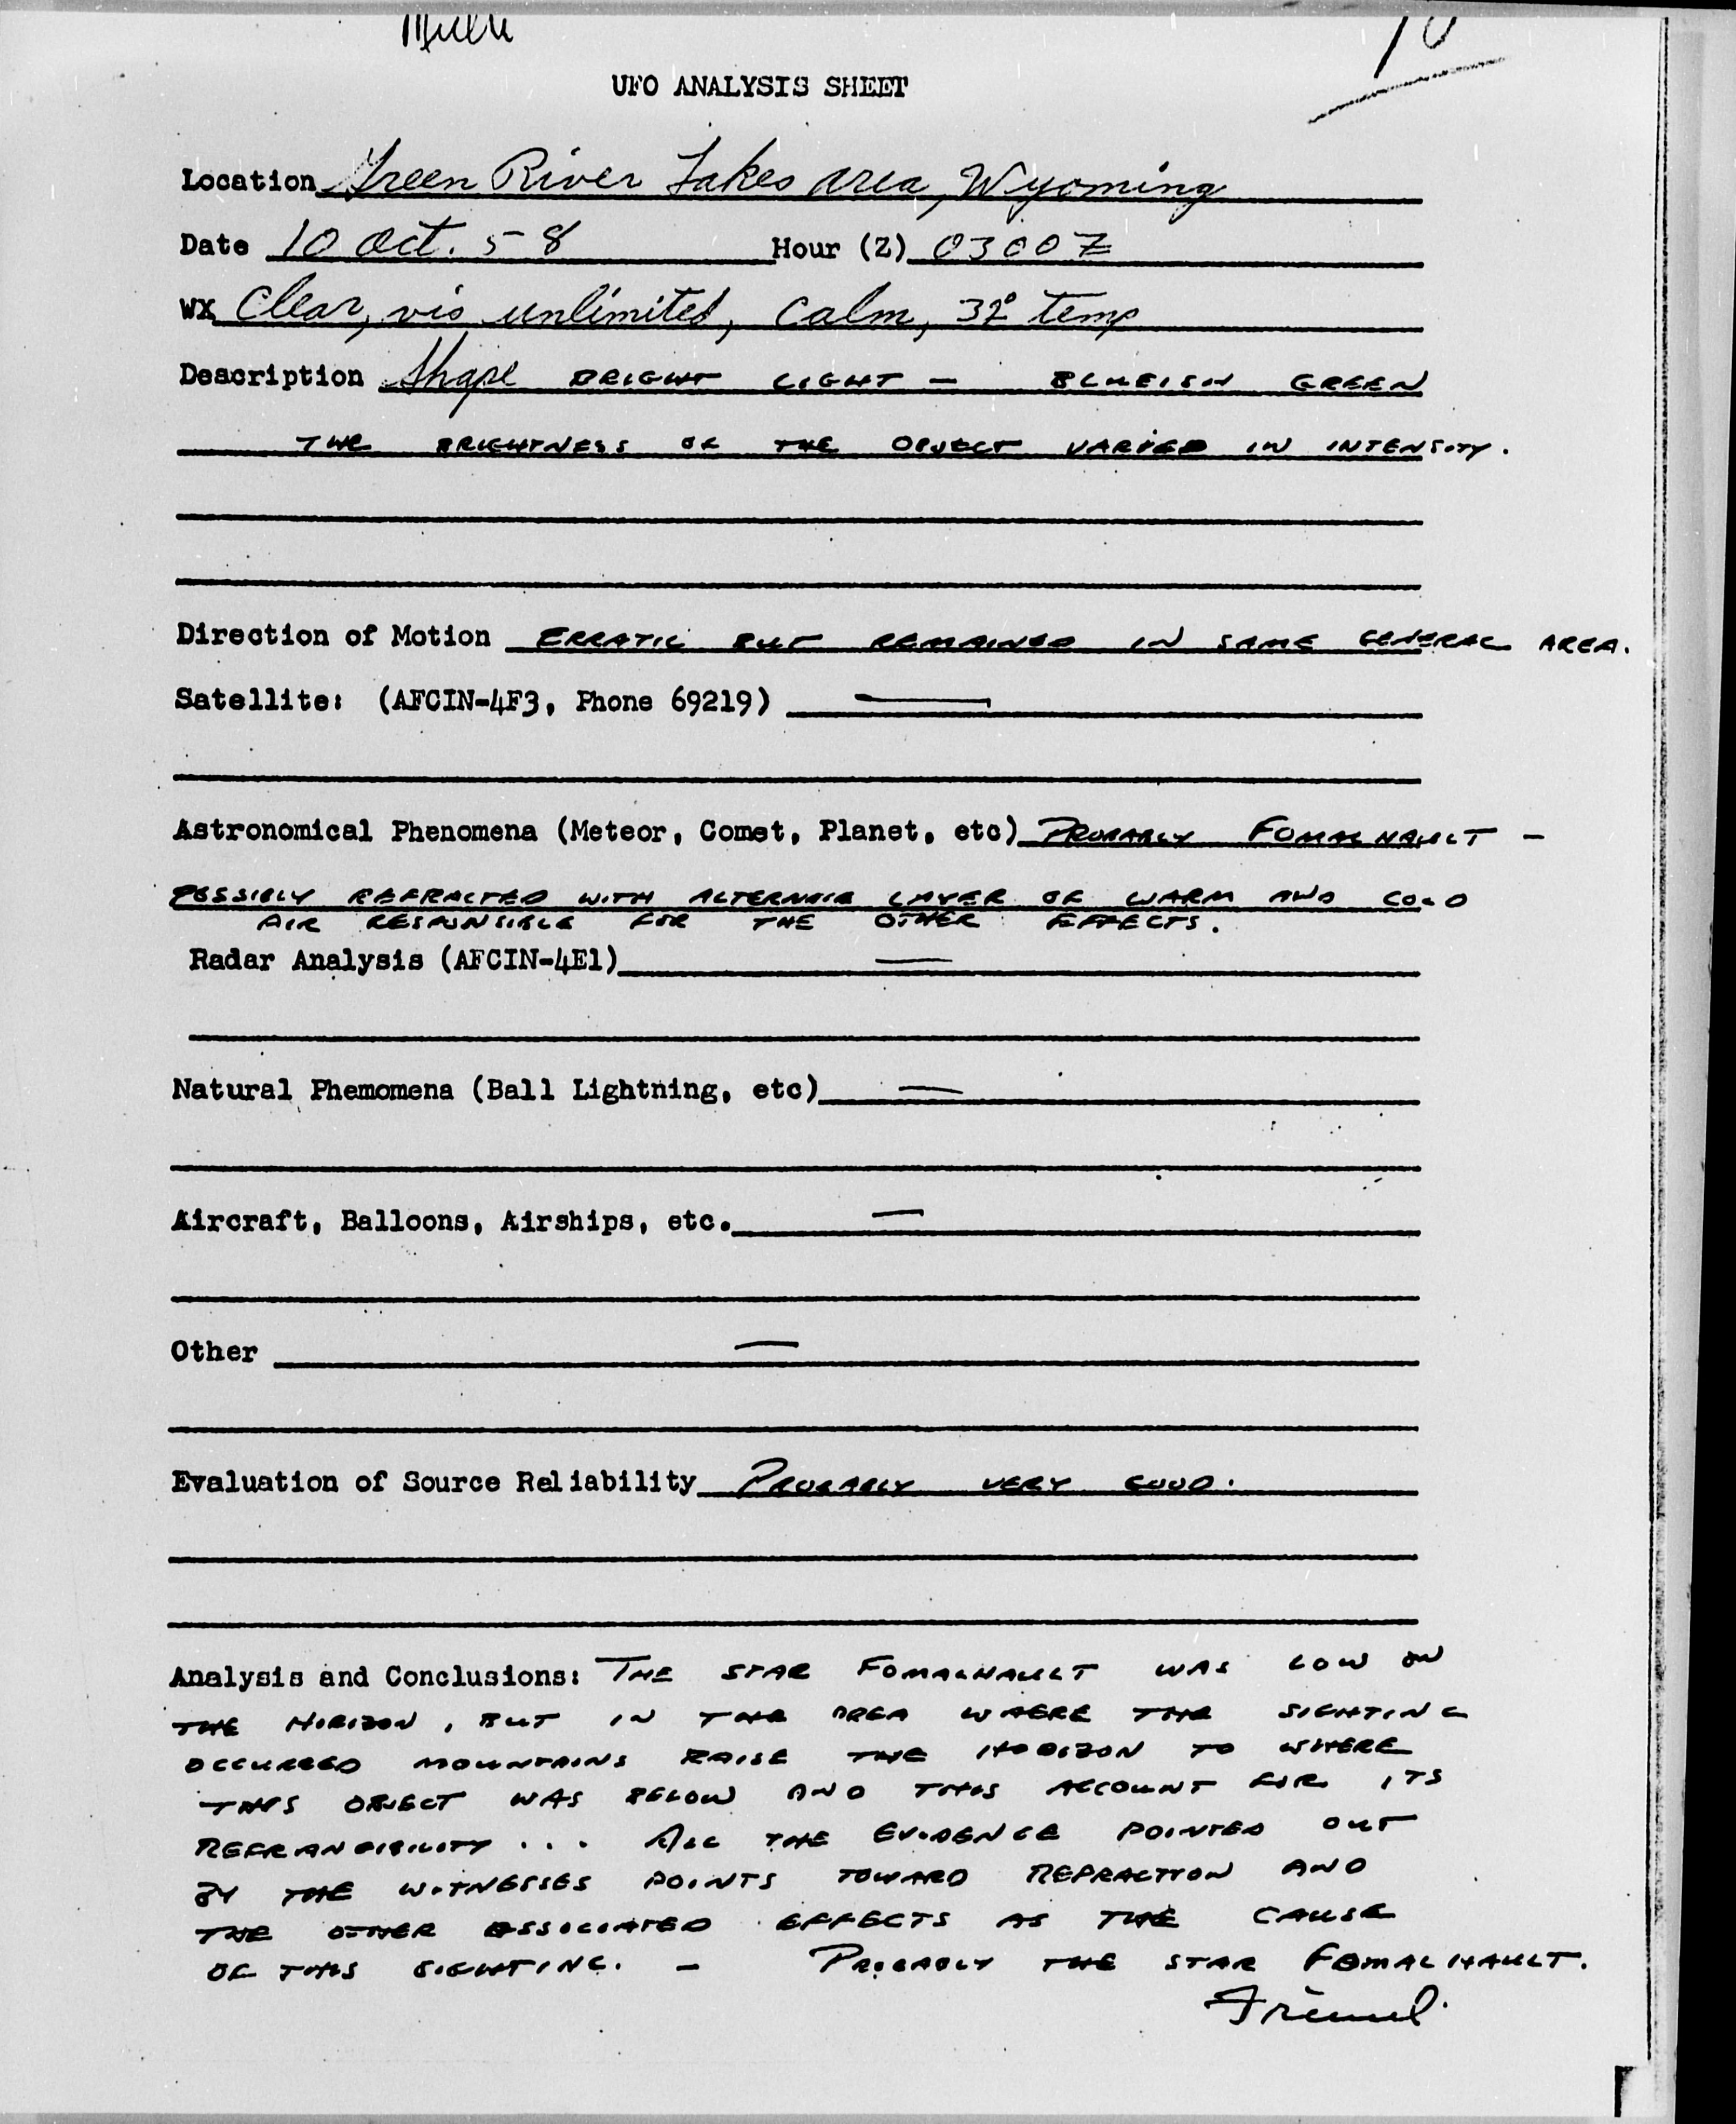 10
UFO ANALYSIS SHEET
Location Green River Lakes area, Wyoming
Date 10 Oct. 58 Hour (Z) 0300Z
WX Clear, vis unlimited, calm, 32° temp
Description Shape BRIGHT LIGHT – BLUEISH GREEN
THE BRIGHTNESS OF THE OBJECT VARIED IN INTENSITY.
Direction of Motion ERRATIC BUT REMAINED IN SAME GENERAL AREA.
Satellite: (AFCIN-4F3, Phone 69219) —
Astronomical Phenomena (Meteor, Comet, Planet, etc) PROBABLY FOMALHAULT –
POSSIBLY REFRACTED WITH ALTERNATE LAYER OF WARM AND COLD
AIR RESPONSIBLE FOR THE OTHER EFFECTS.
Radar Analysis (AFCIN-4E1) —
Natural Phemomena (Ball Lightning, etc) —
Aircraft, Balloons, Airships, etc. —
Other —
Evaluation of Source Reliability PROBABLY VERY GOOD.
Analysis and Conclusions: THE STAR FOMALHAULT WAS LOW ON
THE HORIZON, BUT IN THE AREA WHERE THE SIGHTING
OCCURRED MOUNTAINS RAISE THE HORIZON TO WHERE
THIS OBJECT WAS BELOW AND THIS ACCOUNT FOR ITS
REFRANGIBILITY... ALL THE EVIDENCE POINTED OUT
BY THE WITNESSES POINTS TOWARD REFRACTION AND
THE OTHER ASSOCIATED EFFECTS AS THE CAUSE
OF THIS SIGHTING. – PROBABLY THE STAR FOMALHAULT.